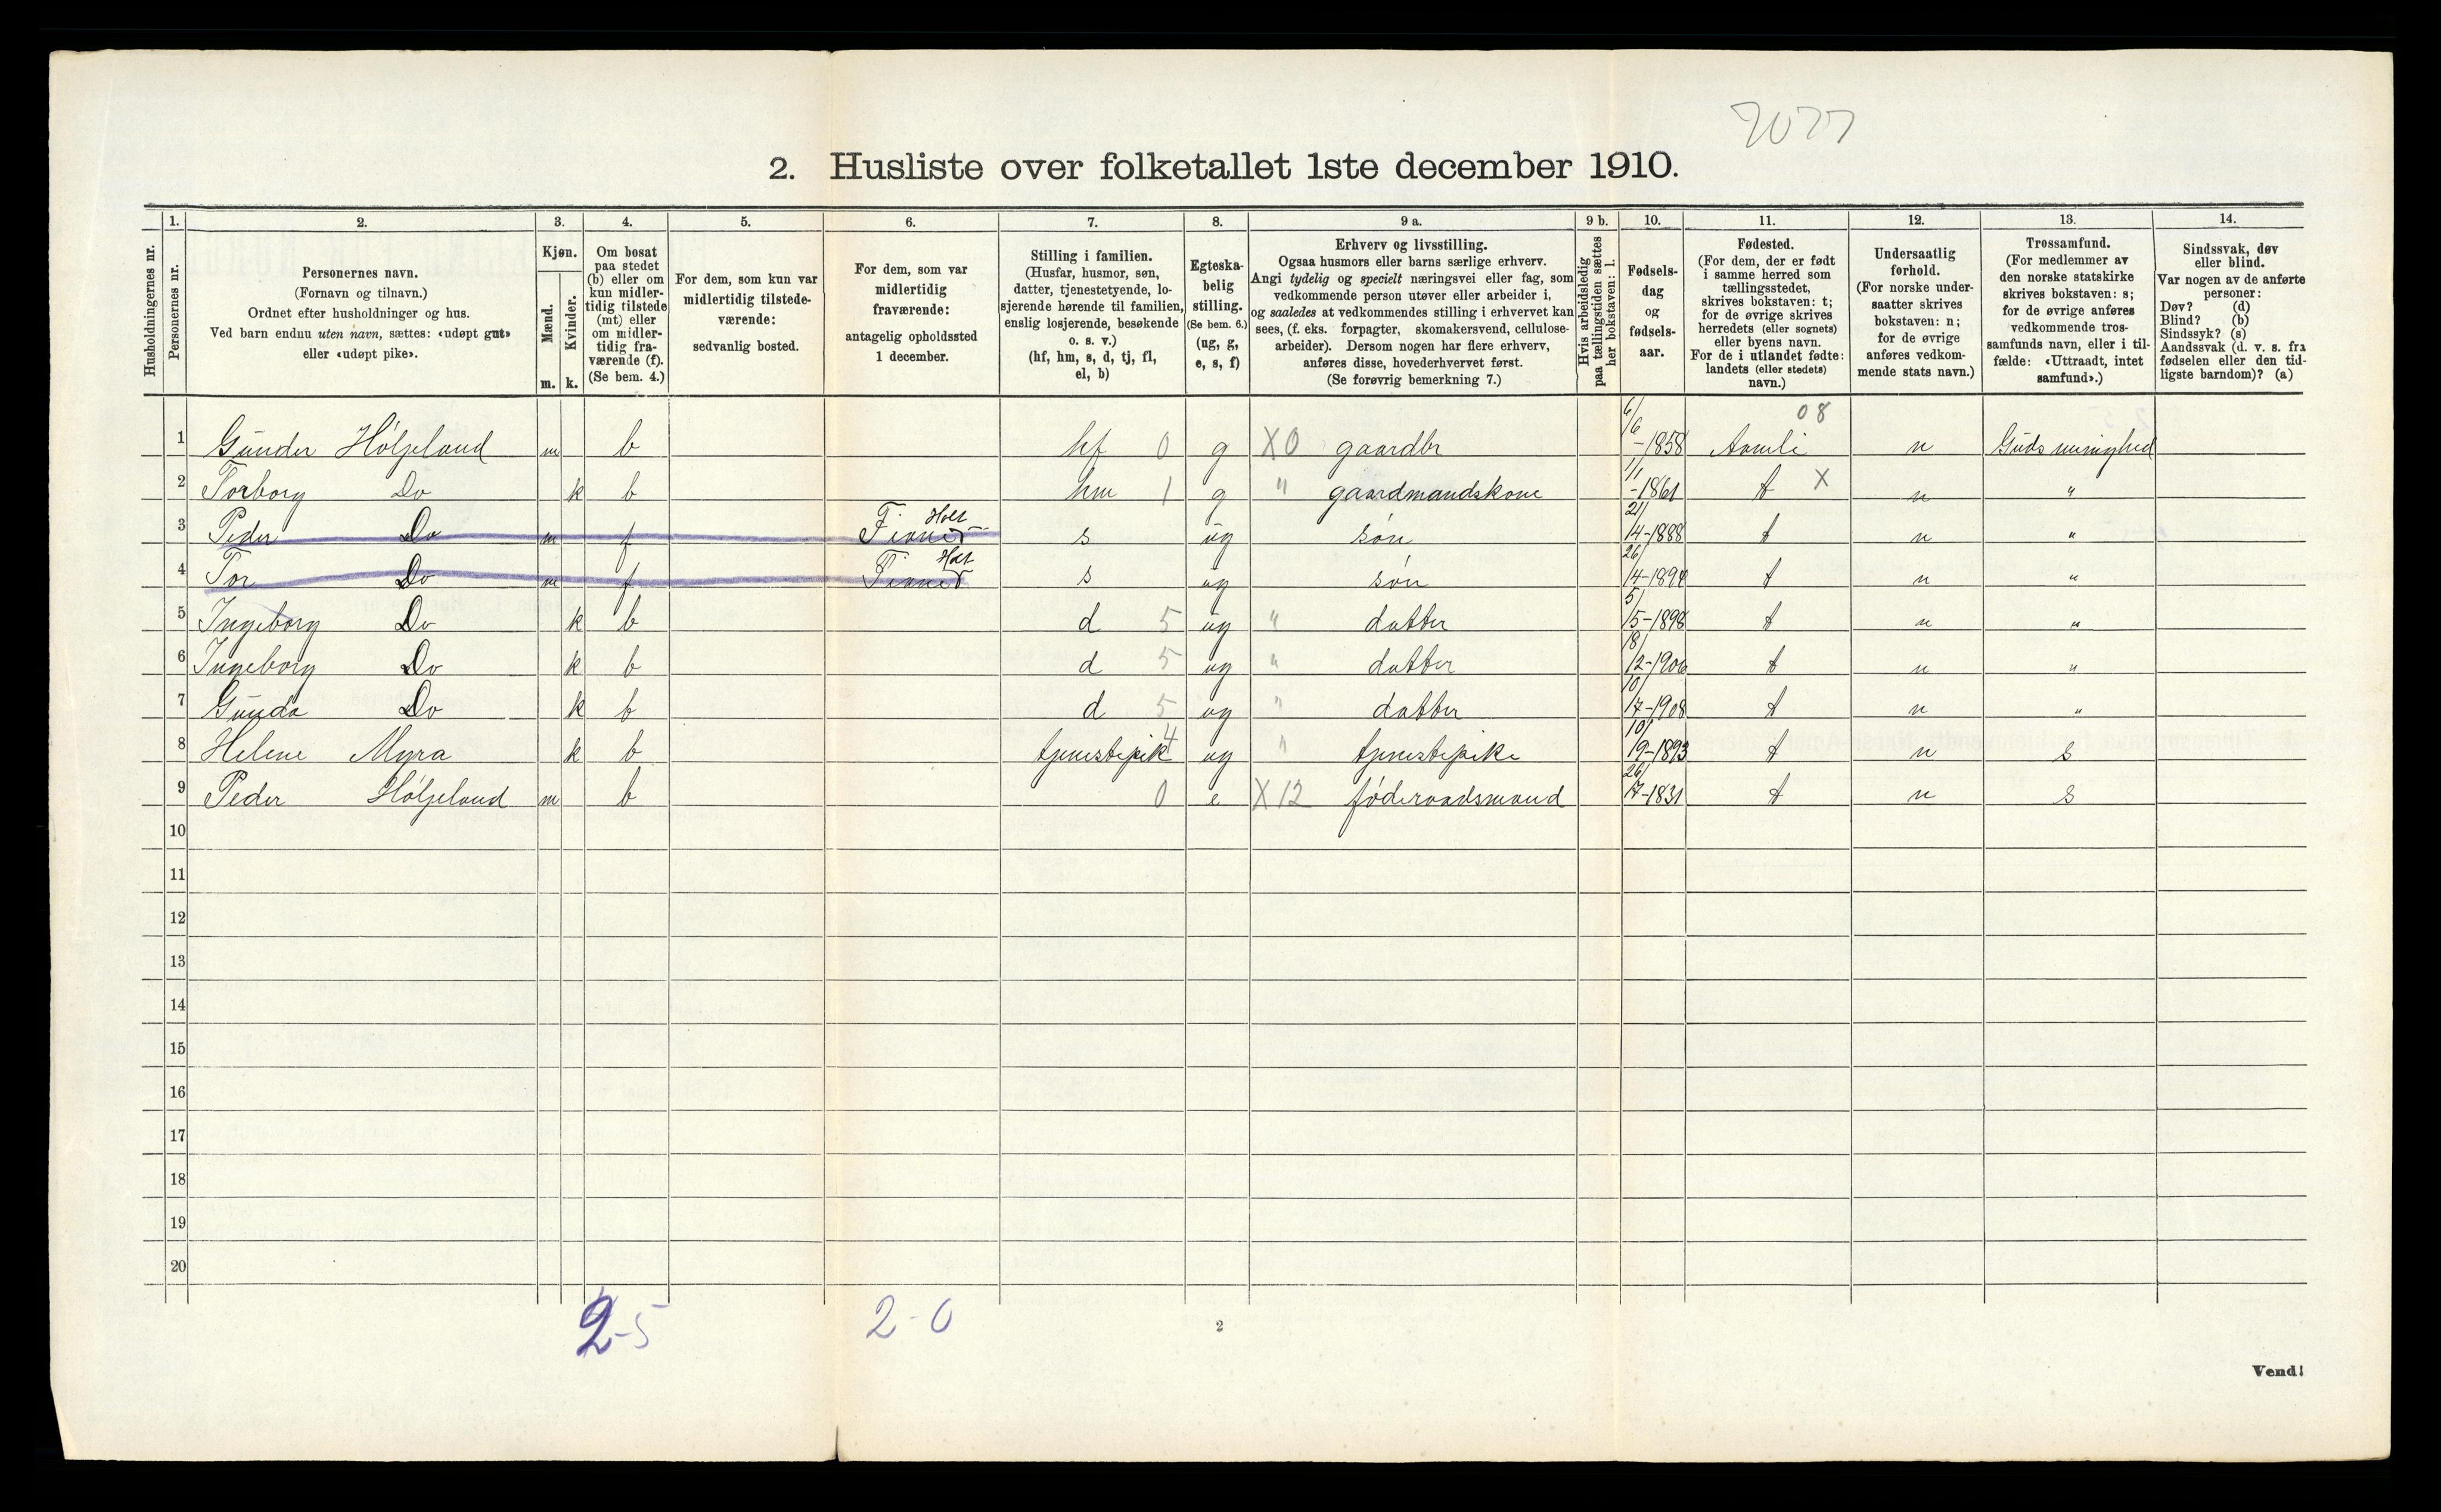 7077
2. Husliste over folketallet 1ste december 1910.
Husholdningernes nr.
1.
Personernes nr.
2.
Personernes navn.
(Fornavn og tilnavn.)
Ordnet efter husholdninger og hus.
Ved barn endnu uten navn, sættes: «udøpt gut»
eller «udøpt pike».
3.
Kjøn.
Mænd.
Kvinder.
m. k.
4.
Om bosat
paa stedet
(b) eller om
kun midler-
tidig tilstede
(mt) eller
om midler-
tidig fra-
værende (f).
(Se bem. 4.)
5.
For dem, som kun var
midlertidig tilstede-
værende:
sedvanlig bosted.
6.
For dem, som var
midlertidig
fraværende:
antagelig opholdssted
1 december.
7.
Stilling i familien.
(Husfar, husmor, søn,
datter, tjenestetyende, lo-
sjerende hørende til familien,
enslig losjerende, besøkende
o. s. v.)
(hf, hm, s, d, tj, fl,
el, b)
8.
Egteska-
belig
stilling.
(Se bem. 6.)
(ug, g,
e, s, f)
9 a.
Erhverv og livsstilling.
Ogsaa husmors eller barns særlige erhverv.
Angi tydelig og specielt næringsvei eller fag, som
vedkommende person utøver eller arbeider i,
og saaledes at vedkommendes stilling i erhvervet kan
sees, (f. eks. forpagter, skomakersvend, cellulose-
arbeider). Dersom nogen har flere erhverv,
anføres disse, hovederhvervet først.
(Se forøvrig bemerkning 7.)
9 b.
Hvis arbeidsledig
paa tællingstiden sættes
her bokstaven: l.
10.
Fødsels-
dag
og
fødsels-
aar.
11.
Fødested.
(For dem, der er født
i samme herred som
tællingsstedet,
skrives bokstaven: t;
for de øvrige skrives
herredets (eller sognets)
eller byens navn.
For de i utlandet fødte:
landets (eller stedets)
navn.)
12.
Undersaatlig
forhold.
(For norske under-
saatter skrives
bokstaven: n;
for de øvrige
anføres vedkom-
mende stats navn.)
13.
Trossamfund.
(For medlemmer av
den norske statskirke
skrives bokstaven: s;
for de øvrige anføres
vedkommende tros-
samfunds navn, eller i til-
fælde: «Uttraadt, intet
samfund».)
14.
Sindssvak, døv
eller blind.
Var nogen av de anførte
personer:
Døv? (d)
Blind? (b)
Sindssyk? (s)
Aandssvak (d. v. s. fra
fødselen eller den tid-
ligste barndom)? (a)
08
1 Gunder Høljeland m b hf 0 g X0 gaardbr 6/6-1858 Aamli n Guds menighed
2 Torborg Do k b hm 1 g " gaardmandskone 1/1-1861 t X n "
3 Peder Do m f Holt s ug søn 21/4-1888 t n "
4 Tor Do m f Holt s ug søn 26/4-1894 t n "
5 Ingeborg Do k b d 5 ug " datter 5/5-1898 t n "
6 Ingeborg Do k b d 5 ug " datter 18/12-1906 t n "
7 Gunda Do k b d 5 ug " datter t n "
8 Helene Myra k b tjenestepik 4 ug " tjenestepike t n s
9 Peder Høljeland m b 0 e X12 føderaadsmand t n s
10
11
12
13
14
15
16
17
18
19
20
2-5
2-0
2
Vend!